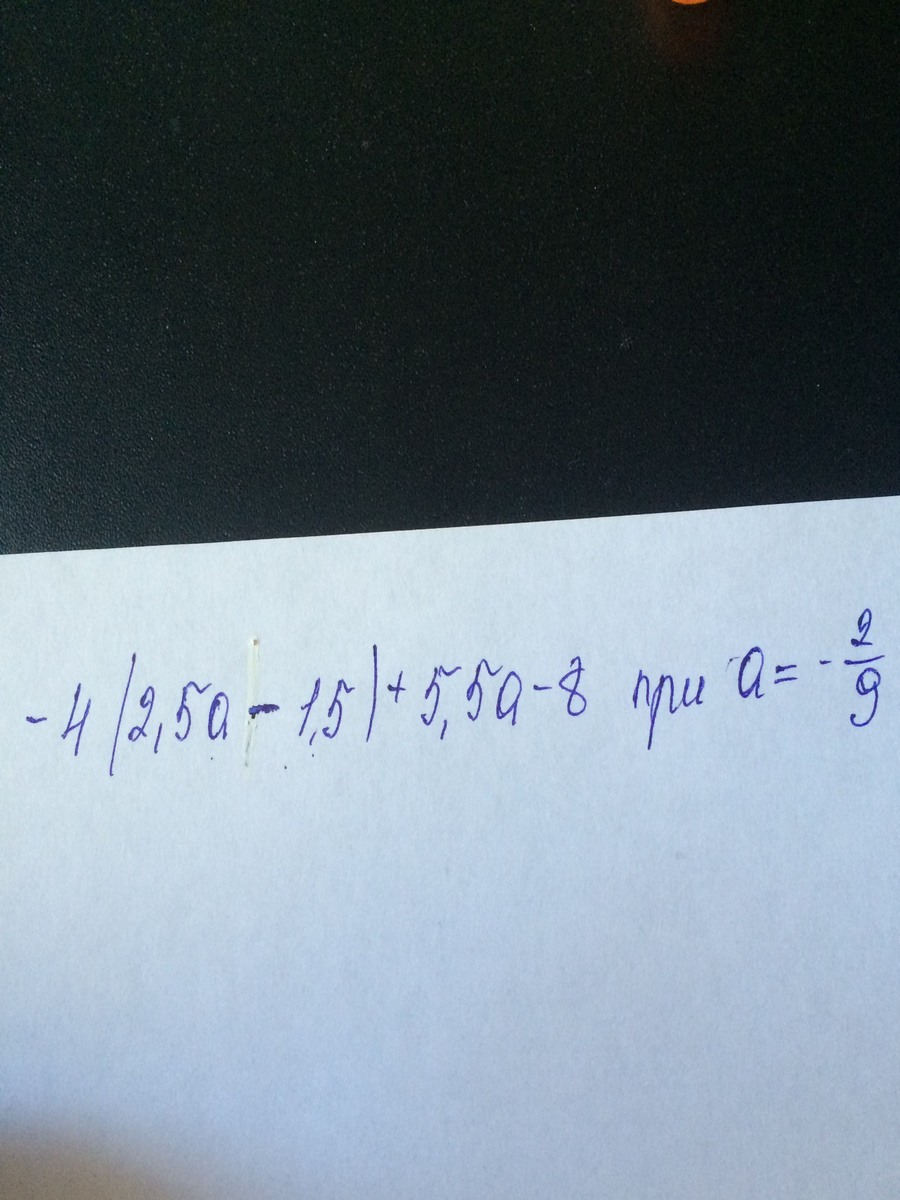 -4(2,5a - 1,5)+5,5a-8 при a=-2/9